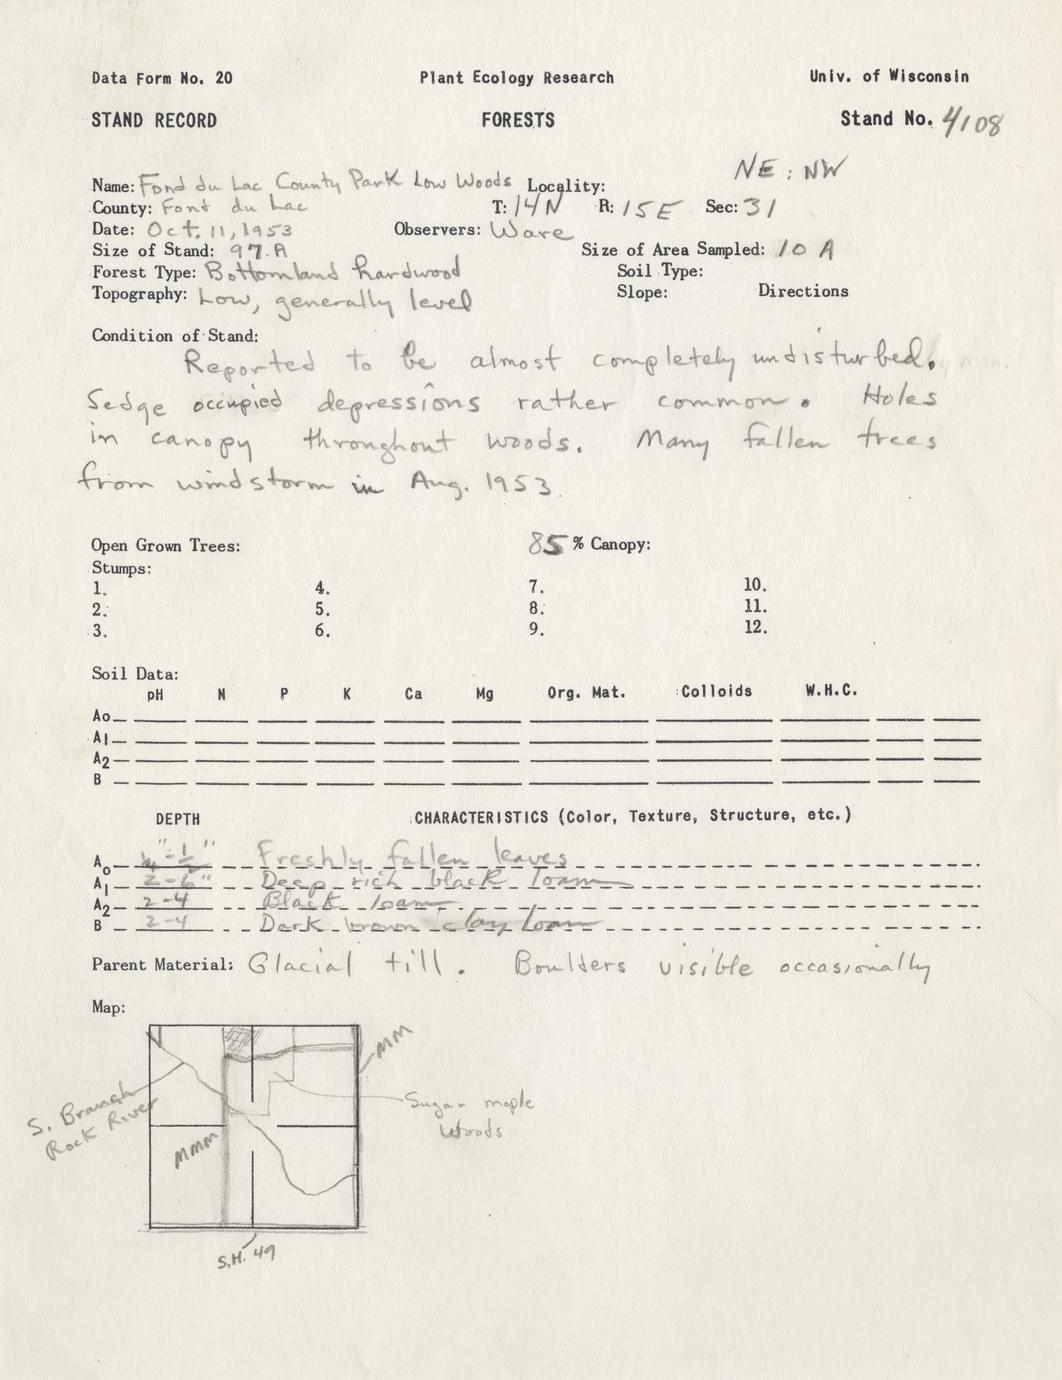 Data Form No. 20 Plant Ecology Research Univ. of Wisconsin
STAND RECORD FORESTS Stand No. 4108
NE : NW
Name: Fond du Lac County Park Low Woods Locality:
County: Font du Lac T: 14N R: 15E Sec: 31
Date: Oct. 11, 1953 Observers: Ware
Size of Stand: 97 A Size of Area Sampled: 10 A
Forest Type: Bottomland hardwood Soil Type:
Topography: Low, generally level Slope: Directions
Condition of Stand:
Reported to be almost completely undisturbed.
Sedge occupied depressions rather common. Holes
in canopy throughout woods. Many fallen trees
from windstorm in Aug. 1953.
Open Grown Trees: 85 % Canopy:
Stumps:
1. 4. 7. 10.
2. 5. 8. 11.
3. 6. 9. 12.
Soil Data:
pH N P K Ca Mg Org. Mat. Colloids W.H.C.
Ao
A1
A2
B
DEPTH CHARACTERISTICS (Color, Texture, Structure, etc.)
Ao ¼"-½" Freshly fallen leaves
A1 2-6" Deep rich black loam
A2 2-4 Black loam
B 2-4 Dark brown clay loam
Parent Material: Glacial till. Boulders visible occasionally
Map:
MM
S. Branch
Rock River
Sugar maple
Woods
MMM
S.H. 49